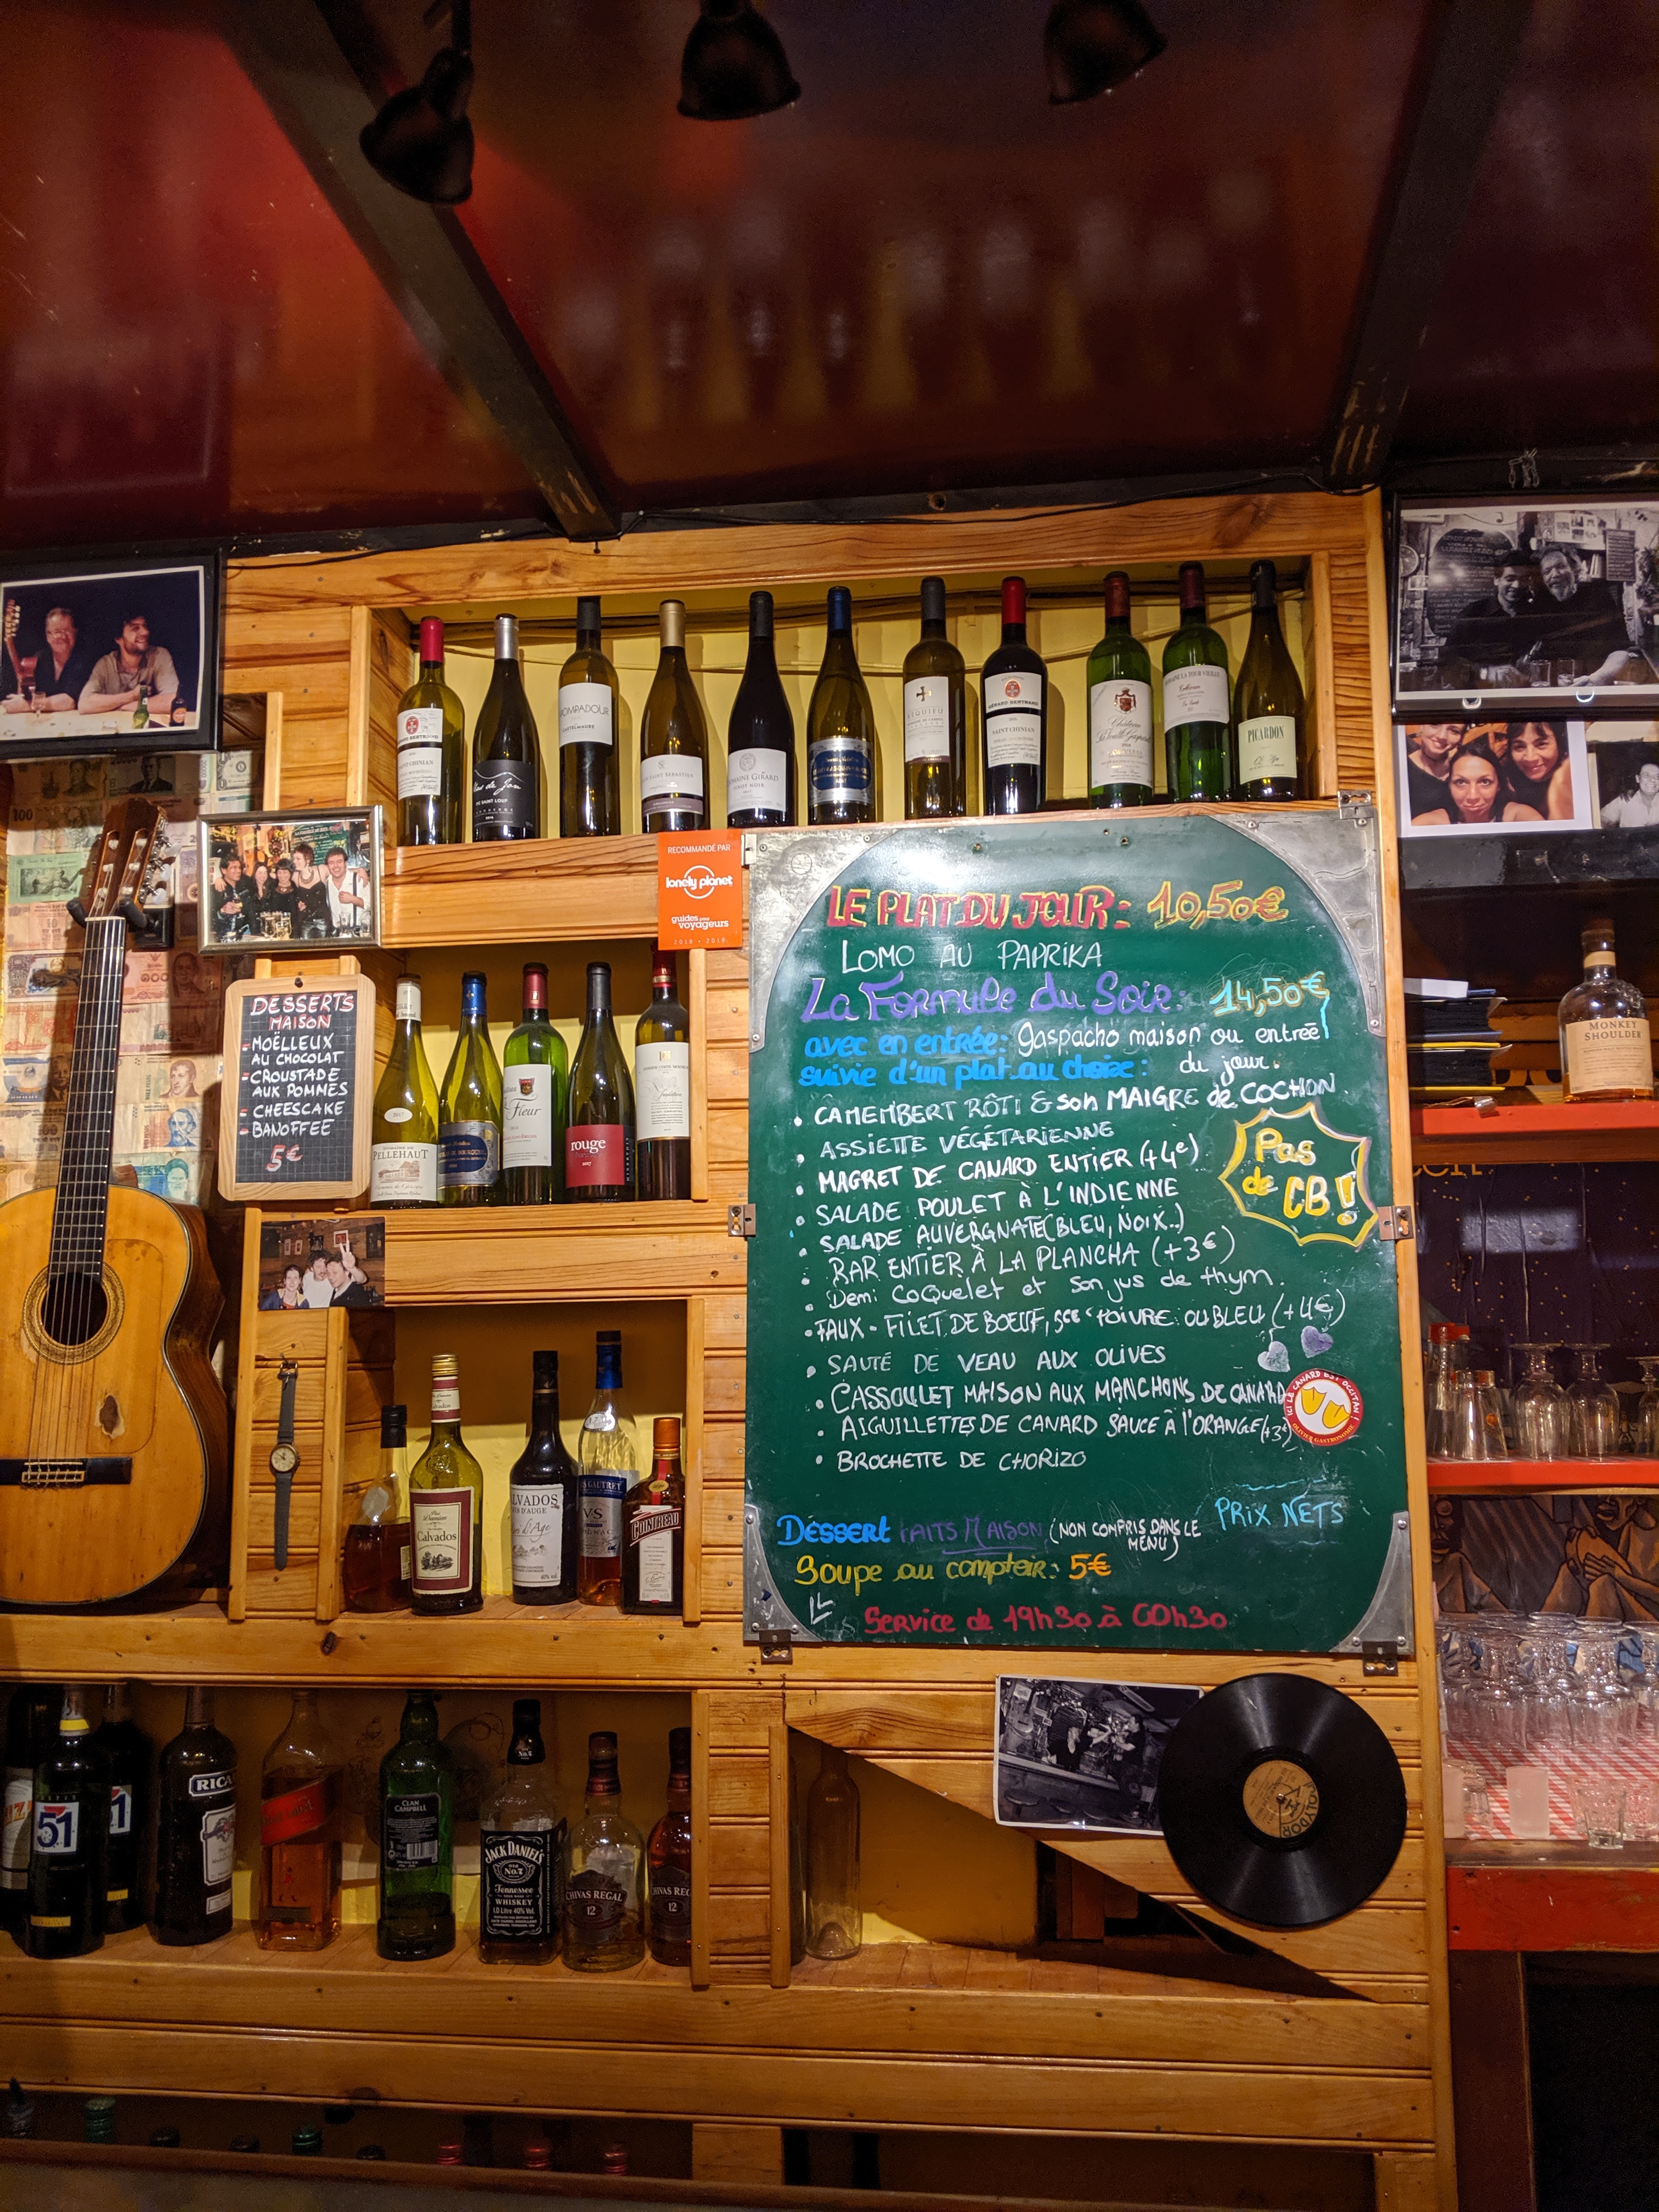 RECOMMANDÉ PAR
lonely planet
guides pour
voyageurs
LE PLAT DU JOUR: 10,50€
LOMO AU PAPRIKA
La Formule du Soir: 14,50€
avec en entrée: gaspacho maison ou entrée
suivie d'un plat au choix: du jour.
• CAMEMBERT RÔTI & son MAIGRE de COCHON
• ASSIETTE VÉGÉTARIENNE
• MAGRET DE CANARD ENTIER (+4€)
• SALADE POULET À L'INDIENNE
• SALADE AUVERGNATE (BLEU, NOIX..)
• BAR ENTIER À LA PLANCHA (+3€)
• Demi COQUELET et son jus de thym.
• FAUX-FILET DE BOEUF, sce POIVRE OU BLEU (+4€)
• SAUTÉ DE VEAU AUX OLIVES
• CASSOULET MAISON AUX MANCHONS DE CANARD
• AIGUILLETTES DE CANARD SAUCE À l'ORANGE (+3€)
• BROCHETTE DE CHORIZO
Pas
de CB!
ICI LE CANARD EST OCCITAN!
PRIX NETS
DESSERT FAITS MAISON (NON COMPRIS DANS LE
MENU)
Soupe au comptoir: 5€
Service de 19h30 à 00h30
DESSERTS
MAISON
- MOËLLEUX
AU CHOCOLAT
- CROUSTADE
AUX POMMES
- CHEESCAKE
- BANOFFEE
5€
POMPADOUR
CASTELMAURE
GÉRARD BERTRAND
SAINT CHINIAN
DOMAINE GIRARD
PINOT NOIR
PICARDON
PELLEHAUT
Fleur
rouge
2017
MONKEY
SHOULDER
Calvados
CALVADOS
VS
COINTREAU
51
RICA
CLAN
CAMPBELL
JACK DANIEL'S
OLD
No.7
Tennessee
WHISKEY
CHIVAS REGAL
12
CHIVAS REG
12
POLYDOR